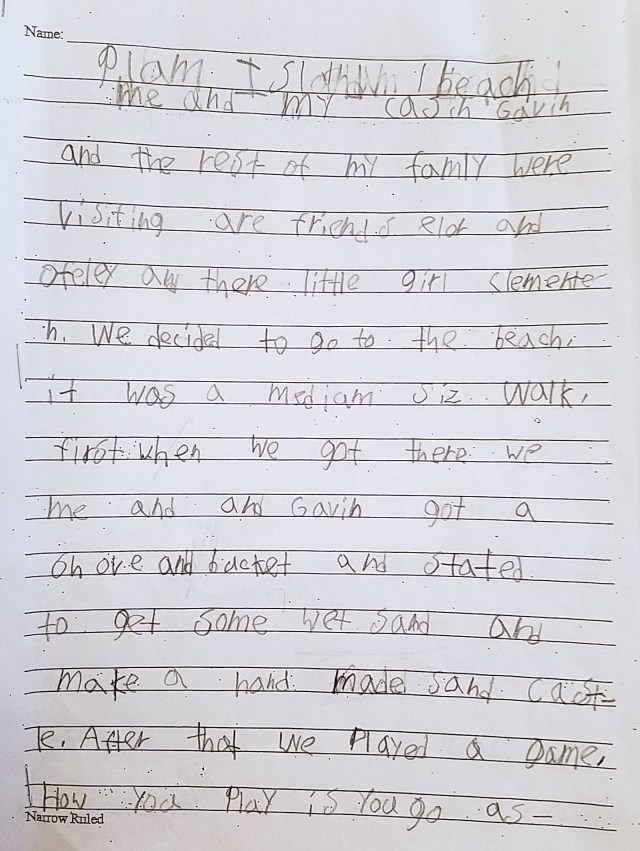 Name:
Plam Island beach
me and my casin Gavin
and the rest of my famly were
visiting are friends elot and
ofeley and there little girl clemente-
n. We decided to go to the beach.
it was a mediam siz walk.
first when we got there we
me and and Gavin got a
shove and bucket and stated
to get some wet sand and
make a hand made sand cast-
le. After that we played a game.
How you play is you go as-
Narrow Ruled